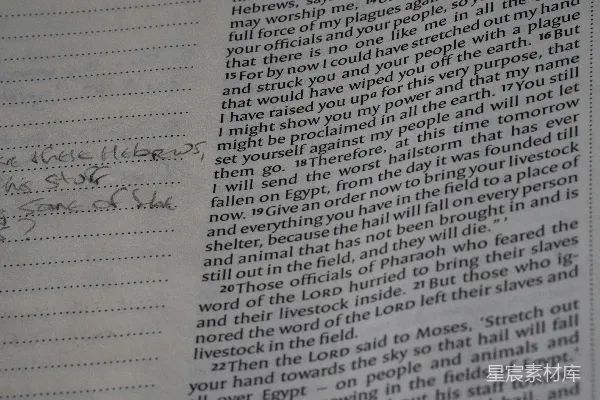 Hebrews,
may worship me,
full force of my plagues again
your officials and your people, so
that there is no one like me in all the
15 For by now I could have stretched out my hand
and struck you and your people with a plague
that would have wiped you off the earth. 16 But
I have raised you up a for this very purpose, that
I might show you my power and that my name
might be proclaimed in all the earth. 17 You still
set yourself against my people and will not let
them go. 18 Therefore, at this time tomorrow
I will send the worst hailstorm that has ever
fallen on Egypt, from the day it was founded till
now. 19 Give an order now to bring your livestock
and everything you have in the field to a place of
shelter, because the hail will fall on every person
and animal that has not been brought in and is
still out in the field, and they will die." '
20 Those officials of Pharaoh who feared the
word of the LORD hurried to bring their slaves
and their livestock inside. 21 But those who ig-
nored the word of the LORD left their slaves and
livestock in the field.
22 Then the LORD said to Moses, 'Stretch out
your hand towards the sky so that hail will fall
all over Egypt – on people and animals and
growing in the fields of Egypt.'
out his staff
hail, and
these Hebrews,
some of the
星宸素材库